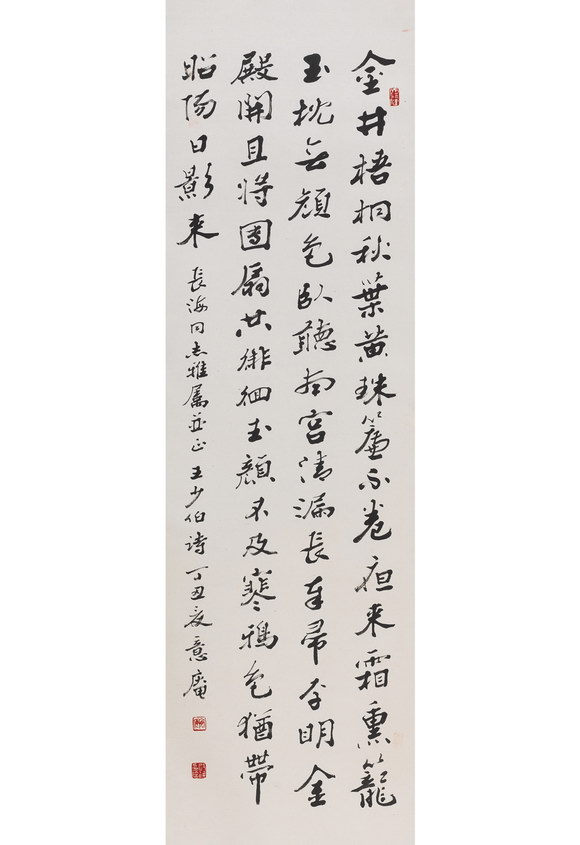 金井梧桐秋葉黄珠簾不卷夜来霜熏籠
玉枕無顔色臥聽南宮清漏長奉帚平明金
殿開且將團扇共徘徊玉顔不及寒鴉色猶帶
昭陽日影来
長海同志雅屬並正王少伯詩丁丑夏意庵